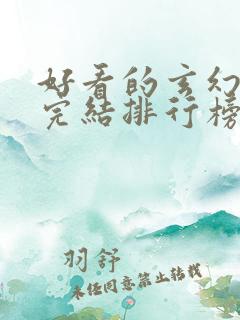 好看的玄幻
完结排行榜
羽舒
未经同意禁止转载